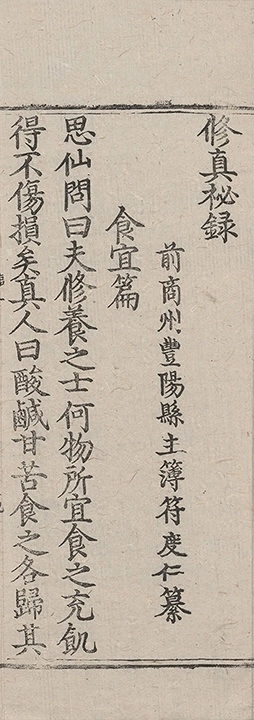 修真秘録
前商州豐陽縣主簿符度仁纂
食宜篇
思仙問曰夫修養之士何物所宜食之充飢
得不傷損矣真人曰酸鹹甘苦食之各歸其